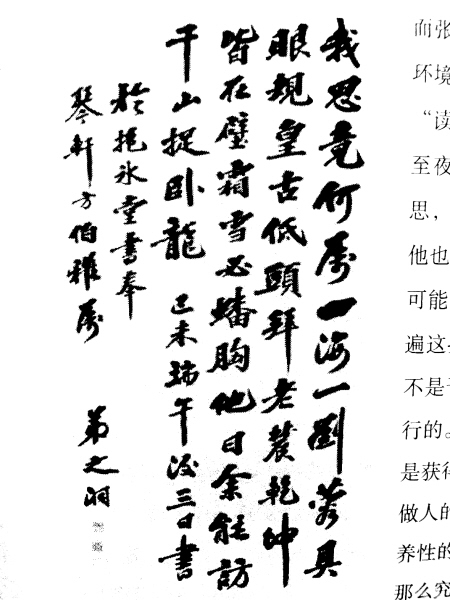 我思竟何属一海一劉蓉具
眼規皇古低頭拜老農乾坤
皆在壁霜雪必蟠胸他日余能訪
千山捉卧龍 己未端午後三日書
於挹冰堂書奉
琴軒方伯雅属
弟之洞
而张
环境
“读
至夜
思，
他也
可能
遍这
不是
行的。
是获得
做人的
养性的
那么究